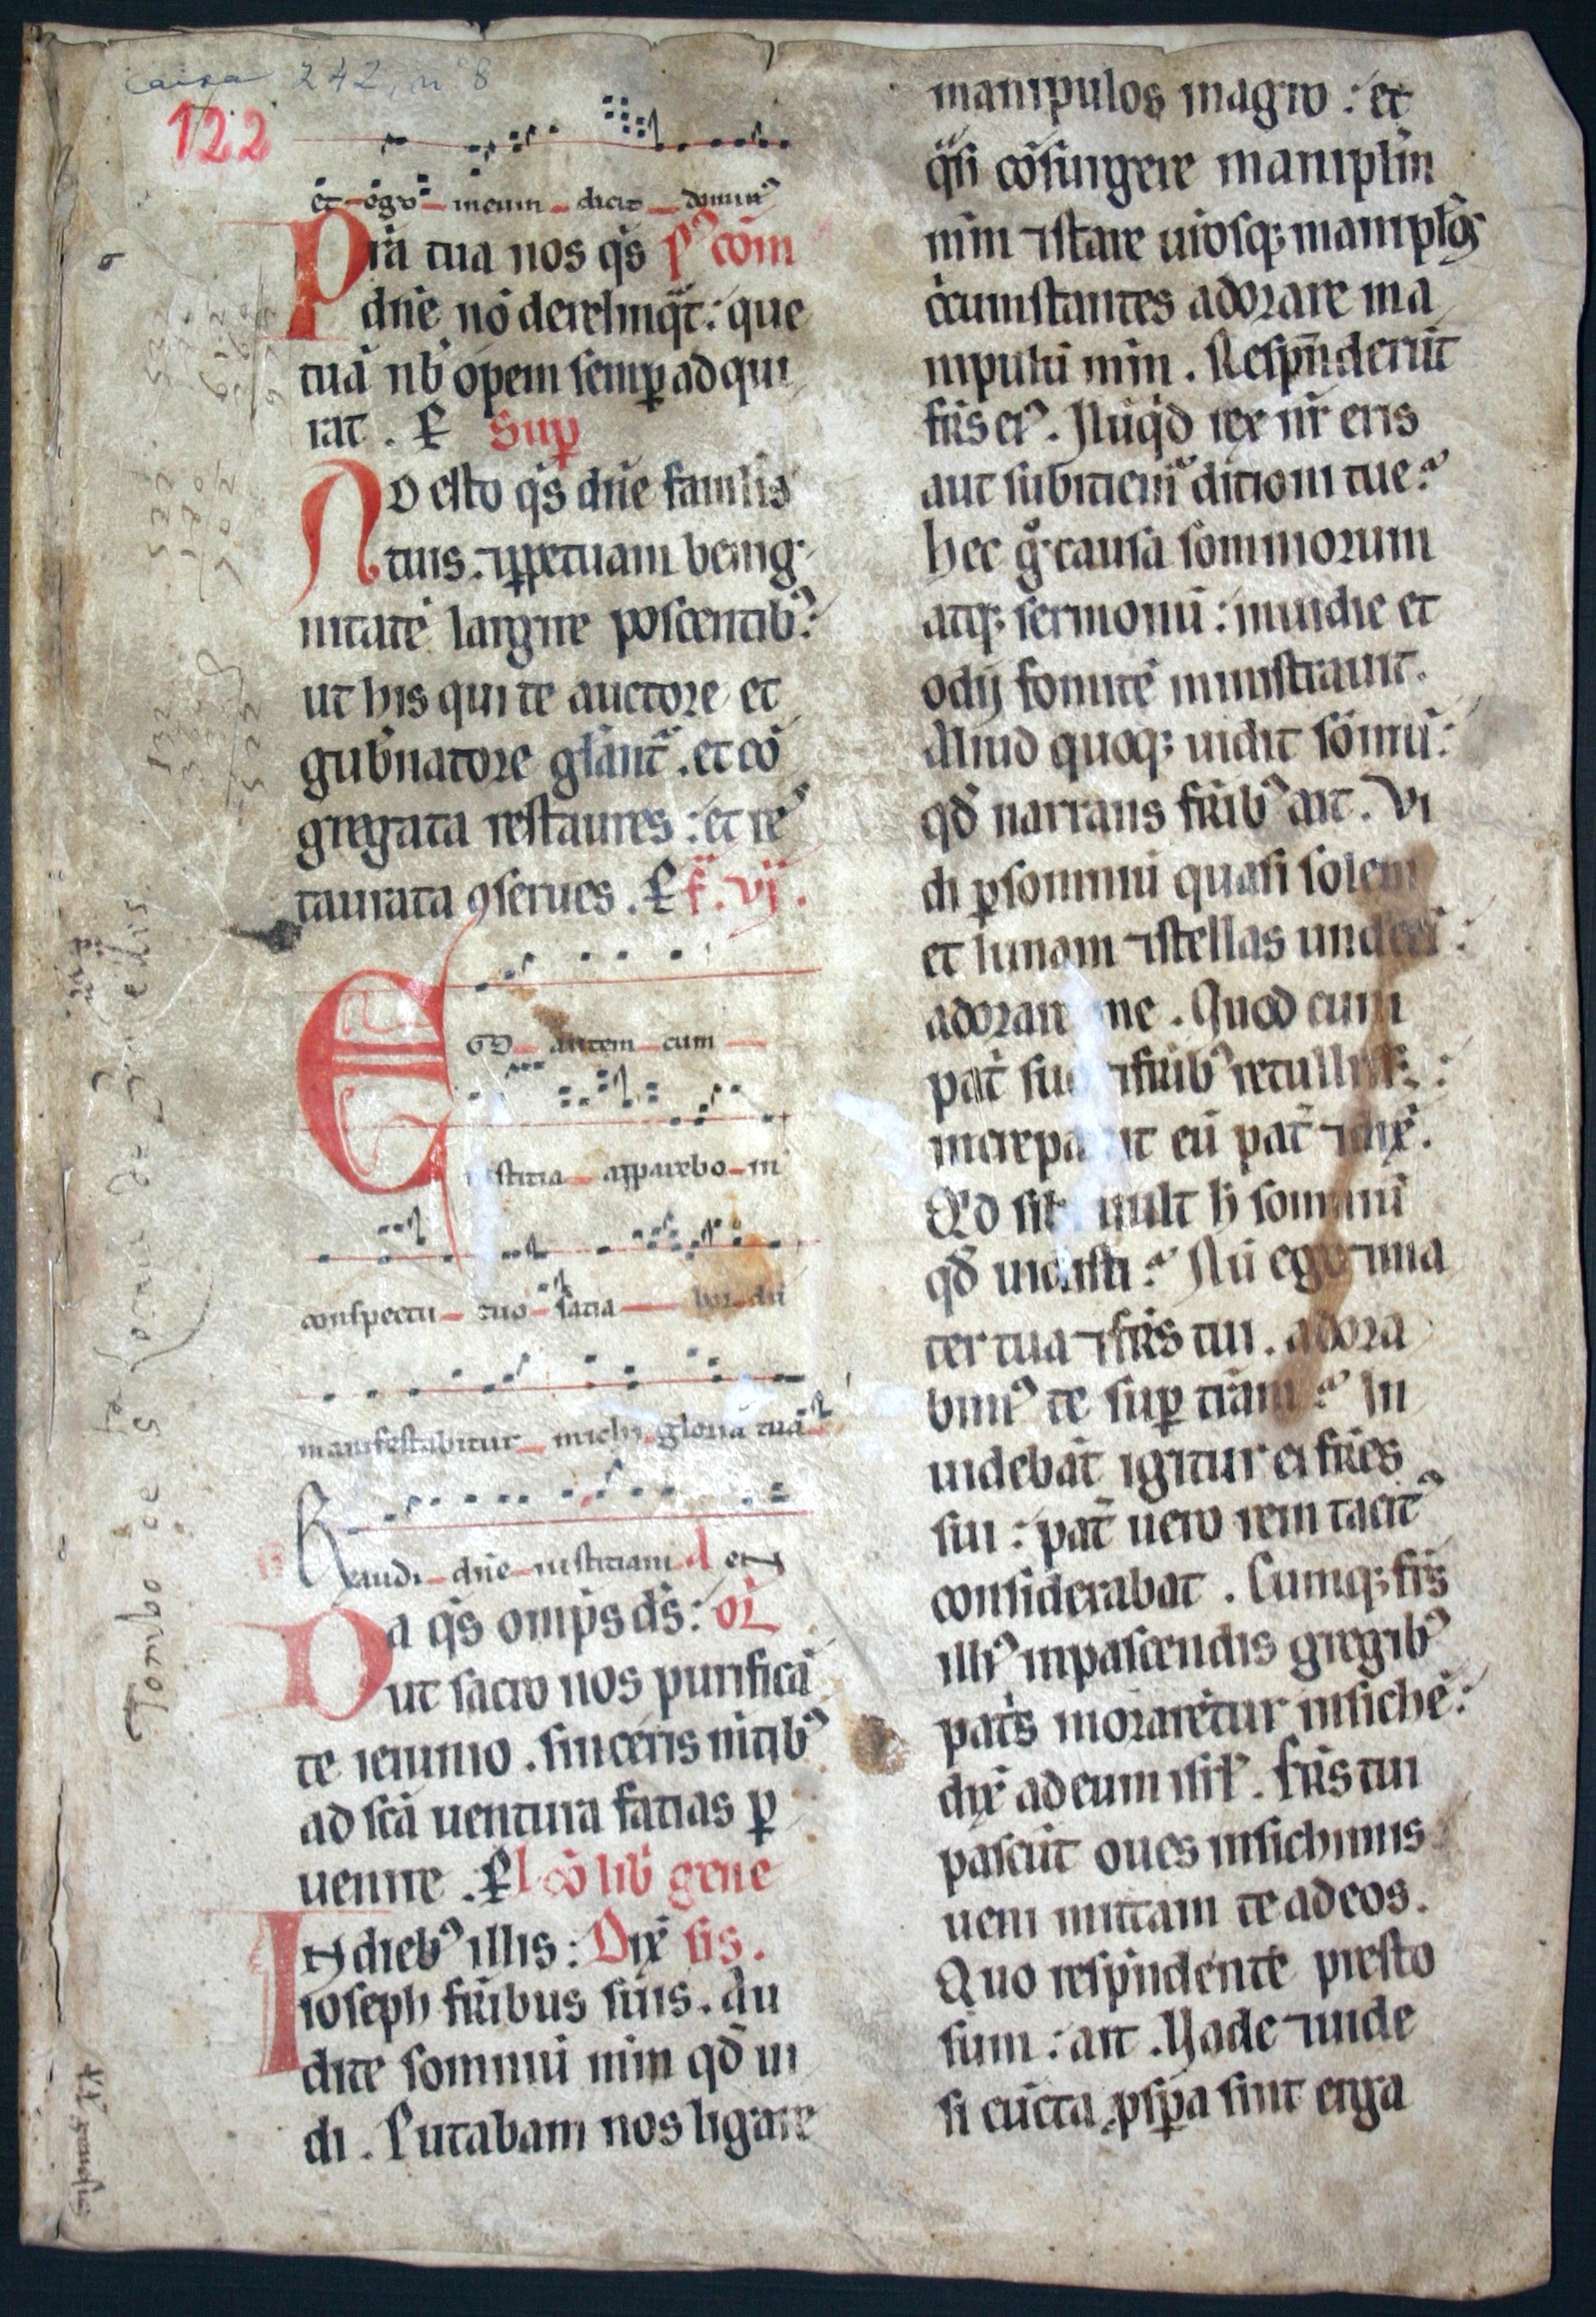 Caixa 242, nº 8
122
et ego in eum dicit dominꝰ
Grã tua nos qs̃ pꝰ com̃
dñe nõ derelinqͣt: que
tuã nb̃ opem semꝑ adqui
rat. P̶ Suꝑ
Ad esto qs̃ dñe famlis
tuis. ⁊ ꝑpetuam benig
nitatẽ largire poscentibꝰ:
ut his qui te auctore et
gub̃natore gl̃ant̃. et cõ
gregata restaures: et res
taurata ꝯserues. P̶ f̃. vj.
Ego autem cum
iustitia apparebo in
conspectu tuo satia bor dũ
manifestabitur michi gloria tua
Exaudi dñe iustitiam d et
Da qs̃ omp̃s ds̃: or̃
ut sacro nos purificã
te ieiunio. sinceris mt̃ibꝰ
ad sc̃a uentura facias ꝑ
uenire. P̶ l̃co lib̃ gene
In diebꝰ illis: Dix̃ sis.
ioseph fr̃ibus suis. Au
dite somniũ mm̃ qd̃ ui
di. Putabam nos ligare
manipulos in agro: et
qͣsi cõsurgere manipl̃m
mm̃ ⁊ stare ur̃osqꝫ manipl̃os
c̃cumstantes adorare ma
nipulũ mm̃. Respñderũt
fr̃s eiꝰ. Nũqͥd rex nr̃ eris
aut subiciemꝰ dicioni tue?
hec gͦ causa somniorum
atqꝫ sermonũ: inuidie et
odij fomitẽ ministrauit.
Aliud quoqꝫ uidit sõniũ:
qd̃ narrans fr̃ibꝰ ait. Vi
di ꝑ somniũ quasi solem
et lunam ⁊ stellas undecĩ:
adorare me. Quod cum
pat̃ suo ⁊ fr̃ibꝰ retulliss̃:
increpauit eũ pat̃ ⁊ dix̃.
Qͥd sibi uult h̃ somniũ
qd̃ uidisti? Nũ ego ⁊ ma
ter tua ⁊ fr̃s tui. adora
bimꝰ te suꝑ trãm? In
uidebãt igitur ei fr̃es
sui: pat̃ uero rem tacitꝰ
considerabat. Cumqꝫ fr̃s
illiꝰ in pascendis gregibꝰ
pat̃s morarẽtur in sichẽ:
dix̃ ad eum isr̃l. Fr̃s tui
pascũt oues in sichimis
ueni mittam te ad eos.
Quo respñdente presto
sum: ait. Vade ⁊ uide
si cũcta ꝓsꝑa sint erga